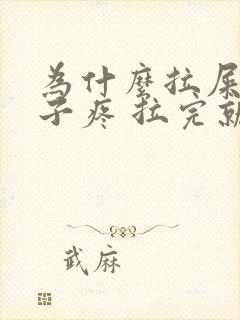 为什麽拉屎
子疼 拉完就
武麻